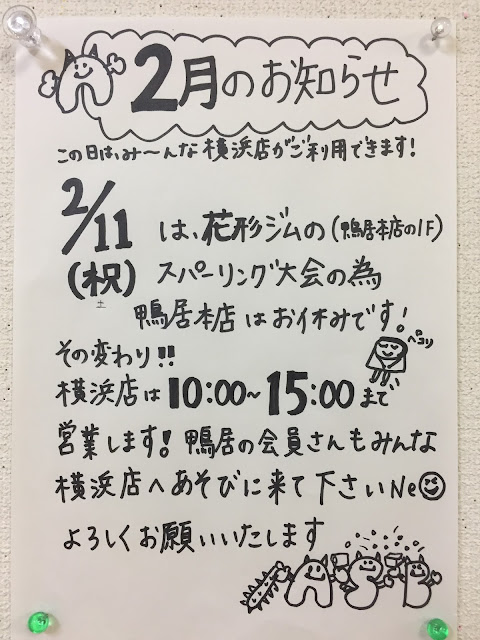 2月のお知らせ
この日は、み〜んな横浜店がご利用できます!
2/11 は、花形ジムの(鴨居本店の1F)
(祝) スパーリング大会の為
土
鴨居本店はお休みです!
ペコリ
その変わり!!
横浜店は10:00〜15:00まで
営業します!鴨居の会員さんもみんな
横浜店へあそびに来て下さいNe
よろしくお願いいたします